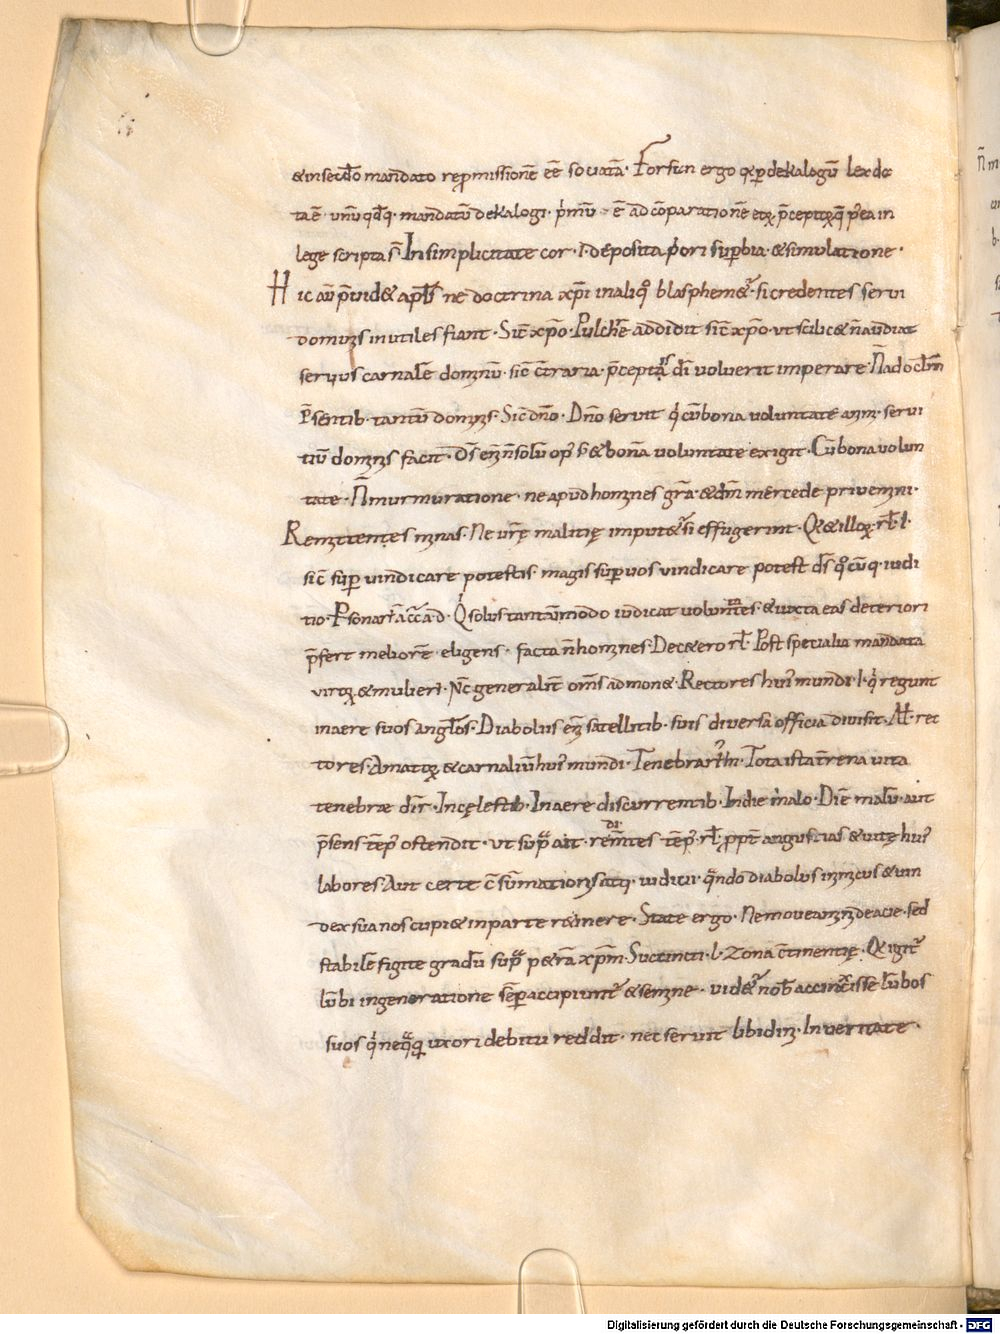 &insecdo mandato repmissionē eē sociatā. Forsan ergo q̄ per dekalogū lex da
ta ē unūqdq. mandatū dekalogi. pmū ē ad cōparationē p̄ceptoꝝ q̄ p ea in
lege scripta s̄. In simplicitate cor. i. deposita priori supbia. & simulatione.
Hic aū p̄uid& apls ne doctrina xp̄i in aliquo blasphem&ur. si credentes serui
domin inutiles fiant. Sic xp̄o. Pulchre addidit sic xp̄o. ut scilic& n̄ audiat
seruus carnalē dominū. sic c̄traria p̄cepta di uoluerit imperare. N̄ ad oclm
P̄sentib. tantū. Sic dn̄o. Dn̄o seruit qi cū bona uoluntate serui
tiū facit. Ds n̄ solū op s& bonā uoluntate exigit. Cū bona uolun
tate. N̄ murmuratione. ne apud homines gra. & dm mercede priuemini.
Remittentes minas. Ne urę malitię imput&ur si effugerint. Q & illoꝝ.
sic sup uindicare potestis. magis sup uos uindicare potest ds qcūq. iudi
tio. Psonar acc a d. Qi solus tantummodo iudicat uoluntates. & iuxta eas deteriori
p̄fert meliorē eligens. facta n̄ homines. Post specialia mandata
uiroꝝ. & mulierū. Nc generalit oms admon&. Rectores hui mundi. l. qi regunt
in aere suos anglos. Diabolus eni satellitib. suis diuersa officia diuisit. Al. rec
tores. Amatoꝝ & carnaliū hui mundi. Tenebrarū h. Tota ista trena uita
tenebræ dir. In cęlestib. In aere discurrentib. In die malo. Diē malū. aut
p̄sens tēp ostendit. ut sup ait. redimentes tēp. ppt angustias & uitę hui
labores. Aut certe csūmationis atq. iudicii. qndo diabolus inimicus & uin
dex sua nos cupi& in parte r&inere. State ergo. Ne moueamini de acie. sed
stabilē figite gradū sup p&rā xp̄m. Succincti. l. Zona c̄tinentię. Q igitur
lūbi in generatione sēp accipiuntur & semine. uid&ur nob accinxisse lūbos
suos qi neq uxori debitū reddit. nec seruit libidini. In ueritate.
Digitalisierung gefördert durch die Deutsche Forschungsgemeinschaft - DFG